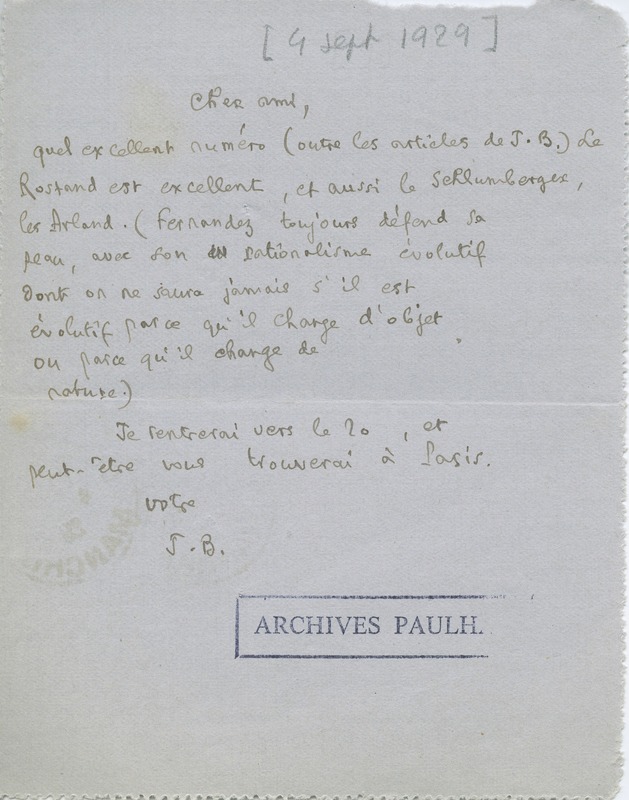 [4 sept 1929]
Cher ami,
quel excellent numéro (outre les articles de J.B.) Le
Rostand est excellent, et aussi le Schlumberger,
les Arland. (Fernandez toujours défend sa
peau, avec son rationalisme évolutif
dont on ne saura jamais s'il est
évolutif parce qu'il change d'objet
ou parce qu'il change de
nature.)
Je rentrerai vers le 20, et
peut-être vous trouverai à Paris.
votre
J.B.
ARCHIVES PAULH.